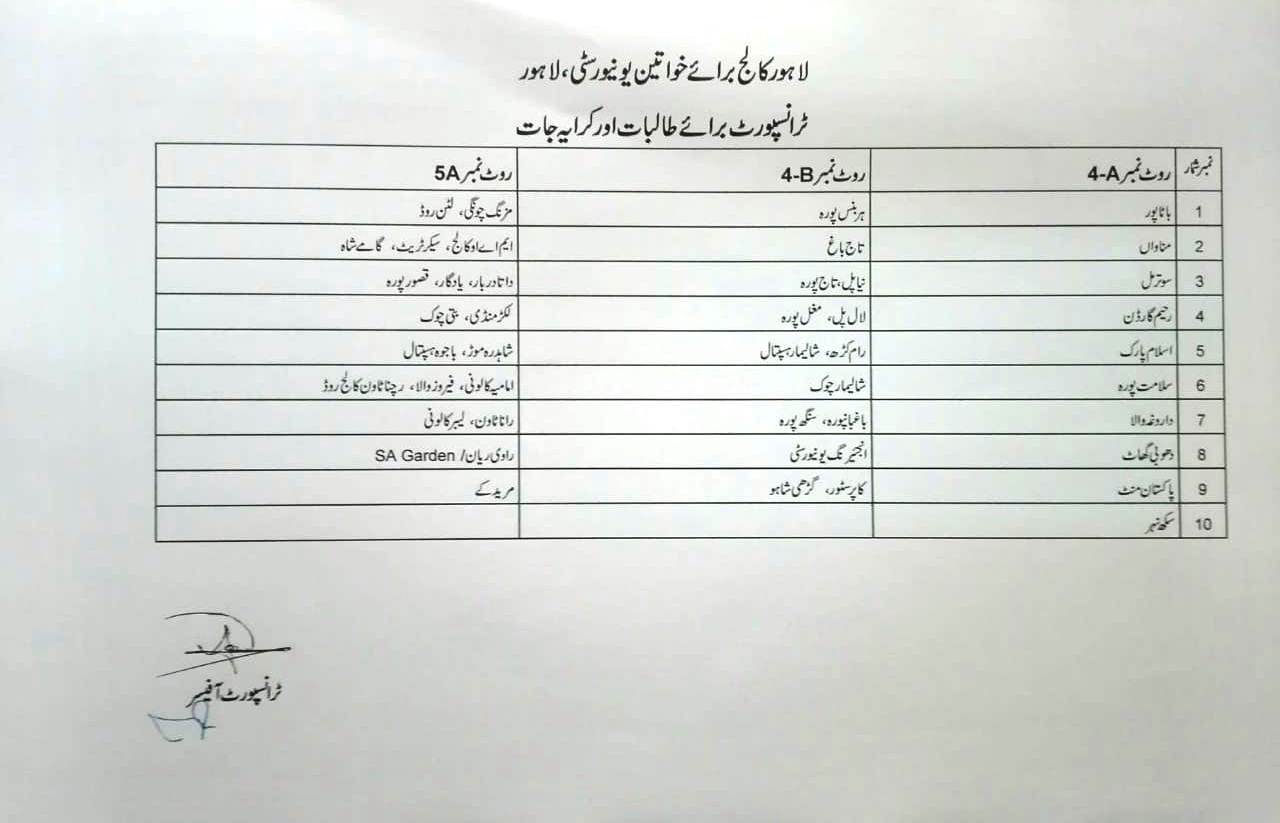 لاہور کالج برائے خواتین یونیورسٹی، لاہور
ٹرانسپورٹ برائے طالبات اور کرایہ جات
نمبر شمار روٹ نمبر 4-A روٹ نمبر 4-B روٹ نمبر 5A
1 باٹا پور ہربنس پورہ مزنگ چونگی، لٹن روڈ
2 مناواں تاج باغ ایم اے او کالج، سیکرٹریٹ، گامے شاہ
3 سوتر مل نیا پل، تاج پورہ داتا دربار، یادگار، قصور پورہ
4 رحیم گارڈن لال پل، مغل پورہ لکڑ منڈی، بتی چوک
5 اسلام پارک رام گڑھ، شالیمار ہسپتال شاہدرہ موڑ، باجوہ ہسپتال
6 سلامت پورہ شالیمار چوک امامیہ کالونی، فیروز والا، رچنا ٹاون کالج روڈ
7 داروغہ والا باغبانپورہ، سنگھ پورہ رانا ٹاون، لیبر کالونی
8 دھوبی گھاٹ انجنیرنگ یونیورسٹی راوی ریان/ SA Garden
9 پاکستان منٹ کاپر سٹور، گڑھی شاہو مریدکے
10 سکھ نہر
ٹرانسپورٹ آفیسر